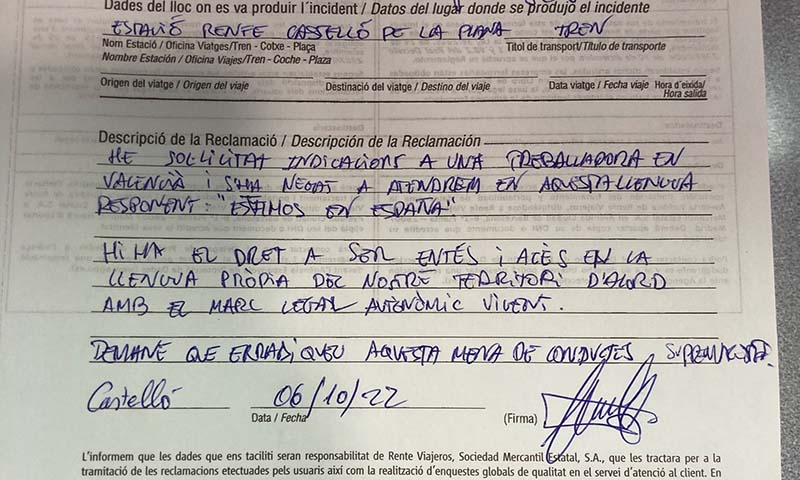 Dades del lloc on es va produir l'incident / Datos del lugar donde se produjo el incidente
ESTACIÓ RENFE CASTELLÓ DE LA PLANA TREN
Nom Estació / Oficina Viatges/Tren - Cotxe - Plaça Títol de transport/Título de transporte
Nombre Estación / Oficina Viajes/Tren - Coche - Plaza
Origen del viatge / Origen del viaje Destinació del viatge / Destino del viaje Data viatge / Fecha viaje Hora d'eixida/
Hora salida
Descripció de la Reclamació / Descripción de la Reclamación
HE SOL·LICITAT INDICACIONS A UNA TREBALLADORA EN
VALENCIÀ I S'HA NEGAT A ATENDREM EN AQUESTA LLENGUA
RESPONENT: "ESTAMOS EN ESPAÑA"
HI HA EL DRET A SER ENTÉS I ATÈS EN LA
LLENGUA PRÒPIA DEL NOSTRE TERRITORI D'ACORD
AMB EL MARC LEGAL AUTONÒMIC VIGENT.
DEMANE QUE ERRADIQUEU AQUESTA MENA DE CONDUCTES SUPREMACISTES.
Castelló 06/10/22
Data / Fecha (Firma)
L'informem que les dades que ens faciliti seran responsabilitat de Rente Viajeros, Sociedad Mercantil Estatal, S.A., que les tractara per a la
tramitació de les reclamacions efectuades pels usuaris així com la realització d'enquestes globals de qualitat en el servei d'atenció al client. En